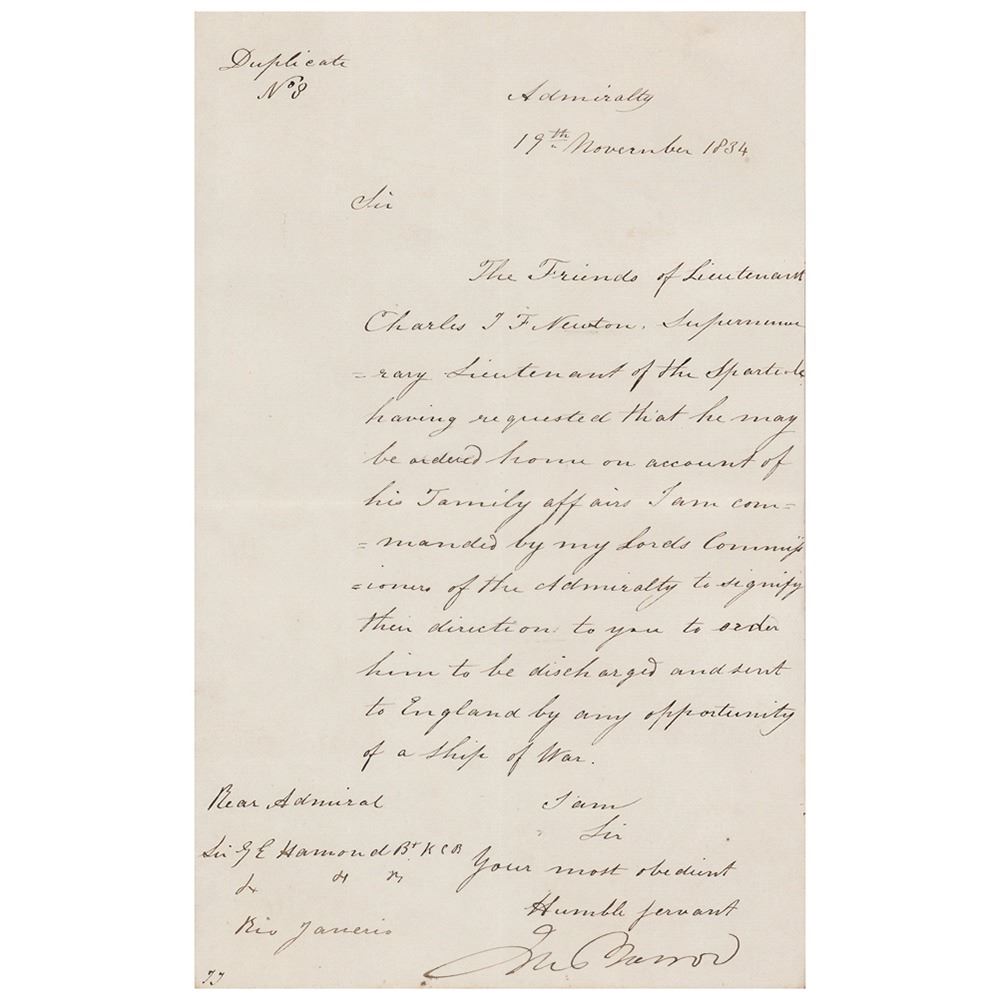 Duplicate
No 8
Admiralty
19th November 1834
Sir
The Friends of Lieutenant
Charles J F Newton. Supernume
=rary Lieutenant of the Spartiate
having requested that he may
be ordered home on account of
his Family affairs I am com=
=manded by my Lords Commiss
=ioners of the Admiralty to signify
their direction to you to order
him to be discharged and sent
to England by any opportunity
of a Ship of War.
Rear Admiral
Sir G E Hamond Bt KCB
&c &c &c
Rio Janerio
I am
Sir
Your most obedient
Humble servant
Jno Barrow